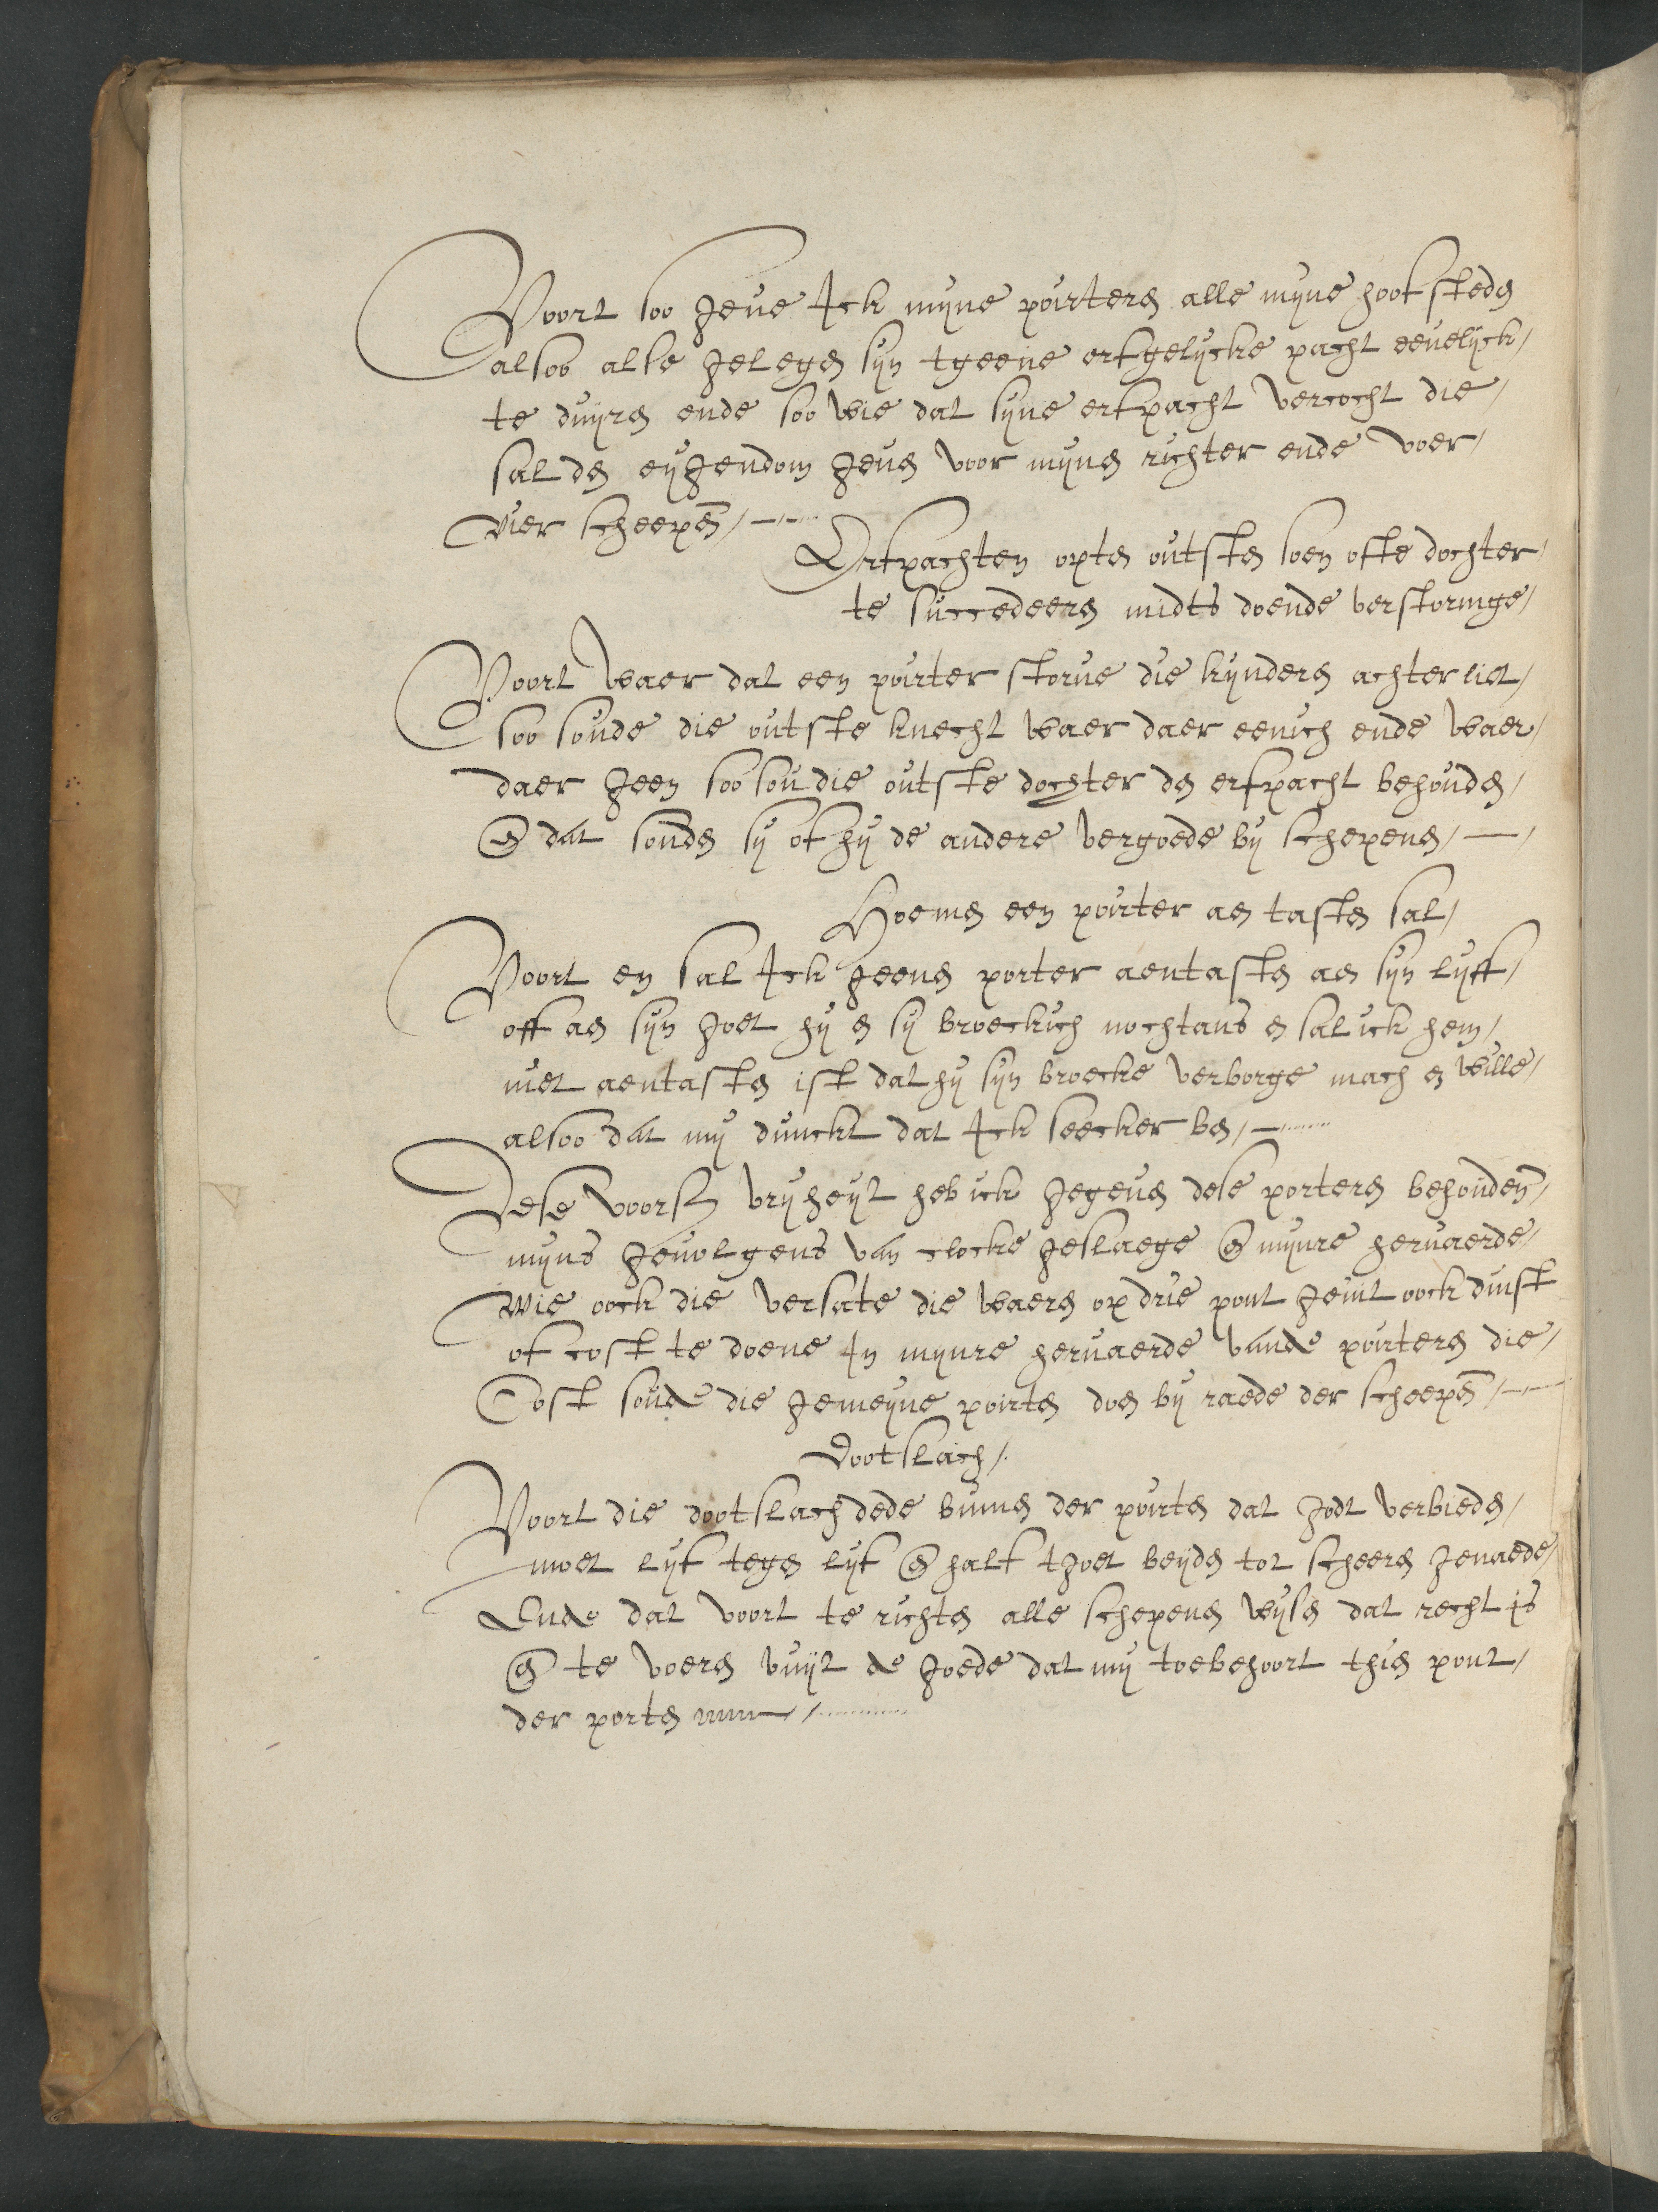 Voort soo geve Ick mijne poirteren alle mijne hoofsteden
alsoo alse gelegen sijn tgeene erfgelijcke pacht eevelijck
te duijren ende soo wie dat sijne erfpacht vercocht die
sal den eijgendom geven voor mijnen richter ende voer
vier scheepen
Erfpachten opten outsten soen ofte dochter
te succedeeren midts doende verstoringe
Voort waer dat een poirter storve die kijnderen achter liet
soo soude die outste knecht waer daer eenich ende waer
daer geen soo sou die outste dochter den erfpacht behouden
en dat souden sij of hij de andere vergoede bij schepenen
Hoemen een poirter aen tasten sal
Voort en sal Ick geenen porter aentasten aen sijn lijff
off aen sijn goet hij en sij broeckich nochtans en sal ick hem
niet aentasten ist dat hij sijn broecke verborge mach en wille
alsoo dat mij dunckt dat Ick seecker ben
Dese voors. vrijheijt heb ick gegeven dese porteren behouden
mijns gevolgens van clocke geslaege en mijnre hervaerde
wie oock die versate die waeren op drie pont geint oock dinst
of cost te doene In mijnre hervaerde vande poirteren die
Cost soude die gemeijne poirten doen bij raede der scheepen
Dootslach
Voort die dootslach dede binnen der poirten dat godt verbieden
moet lijf tegen lijf en half tgoet beijden tot sheeren genaede
Ende dat voort te richten alle schepenen wijsen dat recht is
en te voeren vuijt de goede dat mij toebehoort thien pont
der porten